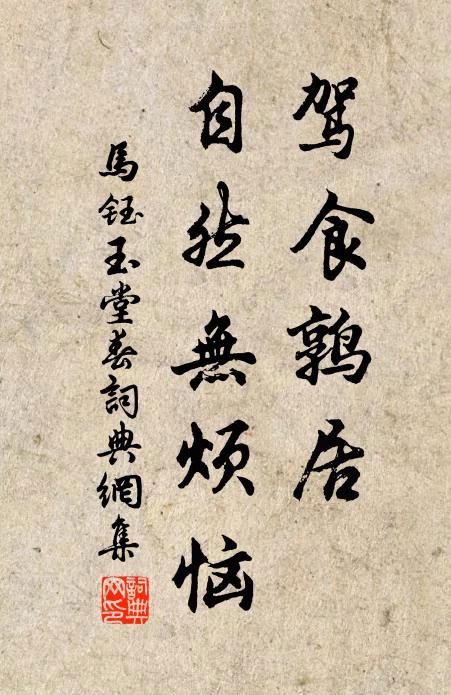 鴐食鹑居
自然無烦恼
馬鈺玉堂春詞典網集
詞典網印